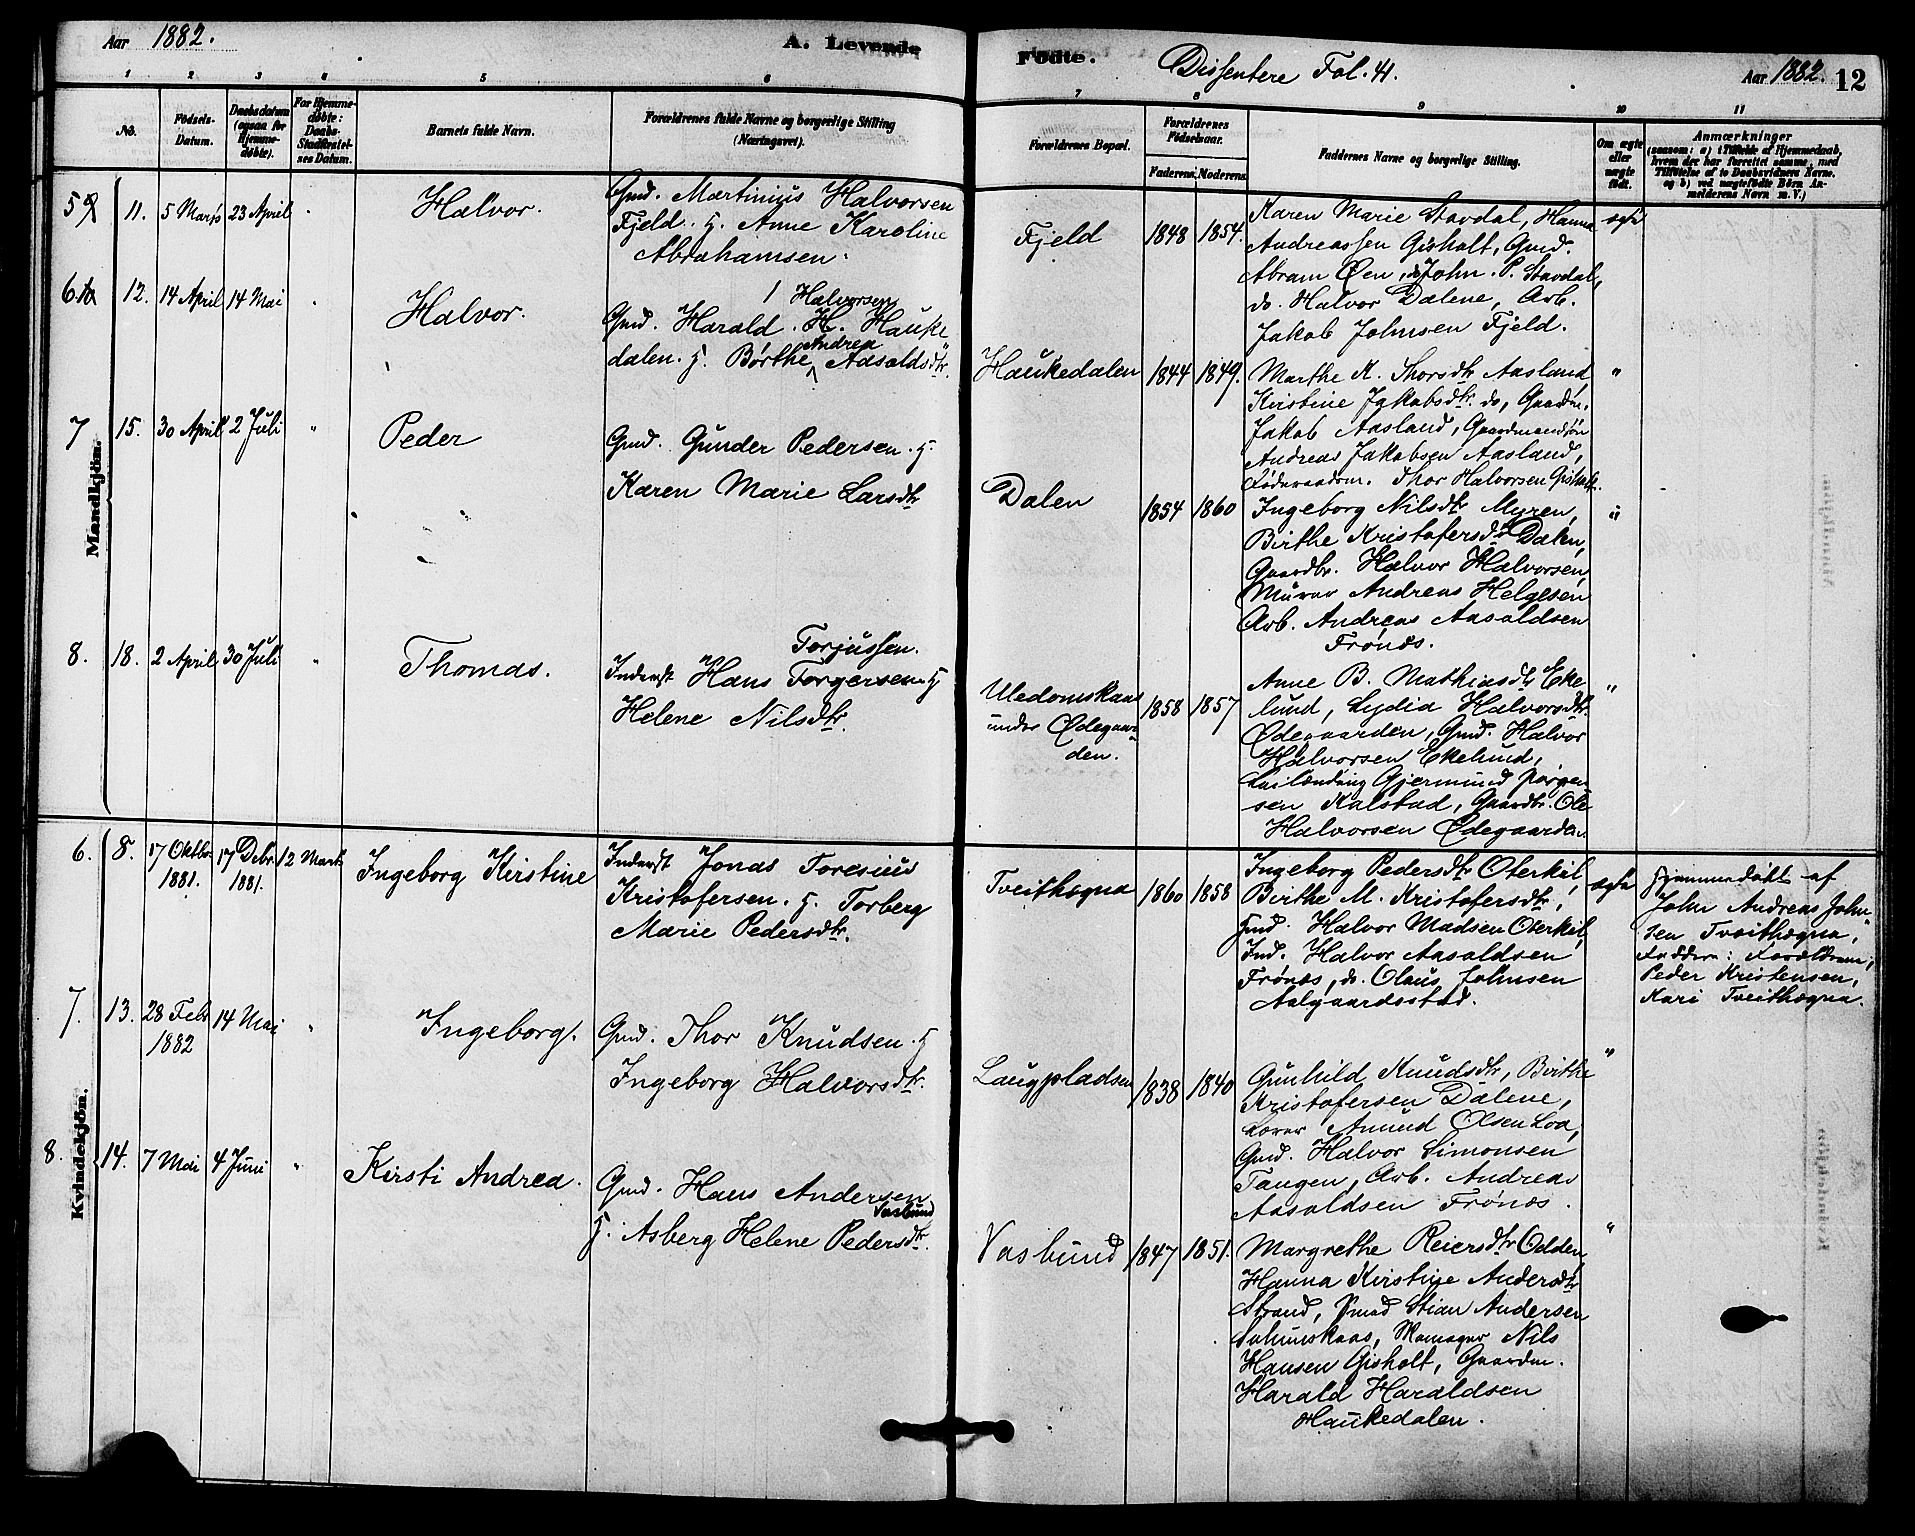 Aar 1882.
A. Levende
Fødte.
Dissentere Fol. 41.
Aar 1882.
12
1 2 3 4 5 6 7 8 9 10 11
No.
Fødsels-
Datum.
Daabsdatum
(ogsaa for
Hjemme-
døbte).
For Hjemme-
døbte:
Daabs-
Stadfæstel-
ses Datum.
Barnets fulde Navn.
Forældrenes fulde Navne og borgerlige Stilling
(Næringsvei).
Forældrenes Bopæl.
Forældrenes
Fødselsaar.
Faderens. Moderens.
Faddernes Navne og borgerlige Stilling.
Om ægte
eller
uægte
født.
Anmærkninger
(saasom: a) i Tilfælde af Hjemmedaab,
hvem der har forrettet samme, med
Tilføielse af to Daabsvidners Navne.
og b) ved uægtefødte Børn An-
melderens Navn m.V.)
Mandkjøn.
5 11. 5 Marts 23 April
Halvor.
Gmd. Martinius Halvorsen
Fjeld. H. Anne Karoline
Abrahamsen.
Fjeld 1848 1854.
Karen Marie Stavdal, Hanna
Andreassen Gisholt, Gmd.
Abram Øen, do John. P. Stavdal,
do. Halvor Dalene, Arb.
Jakob Johnsen Fjeld.
ægte
6 12. 14 April 14 Mai
Halvor.
Halvorsen
Gmd. Harald. H. Hauke
dalen. H. Børthe Andrea Aasoldsdtr.
Haukedalen 1844 1849.
Marthe K. Thorsdtr Aasland
Kirstine Jakobsdtr. do, Gaardm.
Jakob Aasland, Gaardmandssøn
Andreas Jakobsen Aasland,
Føderaadsm. Thor Halvorsen Gisholt.
"
7 15. 30 April 2 Juli "
Peder
Gmd. Gunder Pedersen. H.
Karen Marie Larsdtr
Dalen 1854 1860
Ingeborg Nilsdtr Myren,
Birthe Kristofersdtr Dalen,
Gaardbr. Halvor Halvorsen,
Murer Andreas Helgesen
Arb. Andreas Aasoldsen
Frønæs.
"
8. 18. 2 April 30 Juli "
Thomas.
Torjussen.
Inderst Hans Torgersen. H
Helene Nilsdtr.
Uledomskaas
under Ødegaar-
den.
1858 1857
Anne B. Mathiasdtr Eke
lund, Lydia Halvorsdtr.
Ødegaarden, Gmd. Halvor
Halvorsen Ekelund,
Leilænding Gjermund Jørgen
sen Kalstad, Gaardbr. Ole
Halvorsen Ødegaarden
"
Kvindekjøn.
6. 8. 17 Oktbr 1881. 17 Debr. 1881. 12 Marts
Ingeborg Kirstine
Inderst Jonas Toresius
Kristofersen. H. Torberg
Marie Pedersdtr.
Tveithogna 1860 1858
Ingeborg Pedersdtr Oterkil,
Birthe M. Kristofersdtr,
Gmd. Halvor Madsen Oterkil,
Ind. Halvor Aasoldsen
Frønæs, do. Olaus Johnsen
Aalgaardsstad.
ægte
Hjemmedøbt af
John Andreas John
sen Tveithogna,
Faddere: Forældrene,
Peder Kristensen,
Kari Tveithogna.
7. 13. 28 Febr 1882 14 Mai "
Ingeborg.
Gmd. Thor Knudsen. H
Ingeborg Halvorsdtr.
Laugpladsen 1838 1840
Gunhild Knudsdtr, Birthe
Kristofersen Dalene,
Lærer Amund Olsen Loa,
Gmd. Halvor Simonsen
Tangen, Arb. Andreas
Aasoldsen Frønæs.
"
8. 14. 7 Mai 4 Juni "
Kirsti Andrea.
Gmd. Hans Andersen
Vasbund
H. Asberg Helene Pedersdtr.
Vasbund 1847 1851.
Margrethe Reiersdtr Odden,
Hanna Kirstine Andersdtr
Strand, Smed Stian Andersen
Nils
Hansen Gisholt, Gaardm.
Harald Haraldsen
Haukedalen.
"